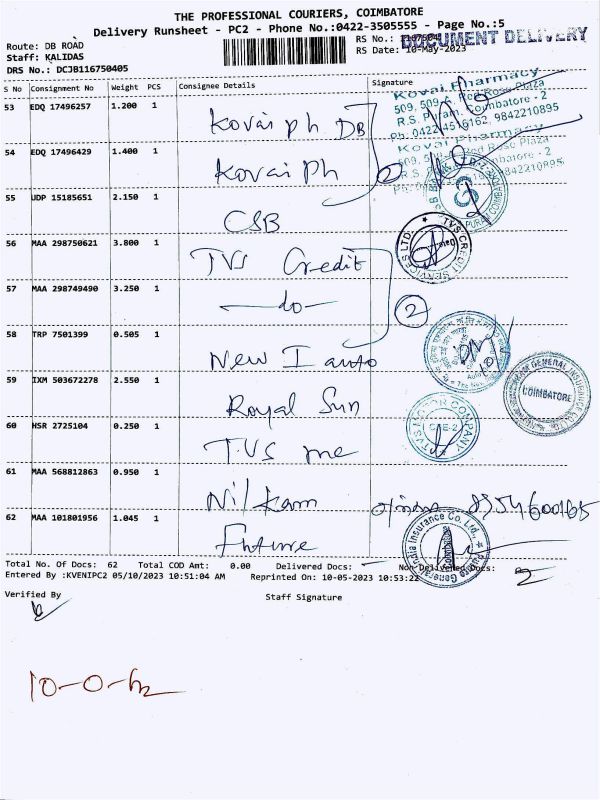 THE PROFESSIONAL COURIERS, COIMBATORE
Delivery Runsheet - PC2 - Phone No.:0422-3505555 - Page No.:5
Route: DB ROAD
Staff: KALIDAS
DRS No.: DCJB116750405
RS No.:
RS Date: 10-May-2023
DOCUMENT DELIVERY
S No Consignment No Weight PCS Consignee Details Signature
53 EDQ 17496257 1.200 1 Kovai Ph DB
Kovai Pharmacy
509, 509-A, Red Rose Plaza
R.S. Puram, Coimbatore - 2
Ph. 0422-4516162, 9842210895
54 EDQ 17496429 1.400 1 Kovai Ph 2
Kovai Pharmacy
509, Red Rose Plaza
Coimbatore - 2
9842210895
55 UDP 15185651 2.150 1 CSB
56 MAA 298750621 3.800 1 TVS Credit
TVS CREDIT SERVICES LTD.
57 MAA 298749490 3.250 1 —do— 2
58 TRP 7501399 0.505 1 New I auto
59 IXM 503672278 2.550 1 Royal Sun
GENERAL INSURANCE CO. LTD.
COIMBATORE
60 HSR 2725104 0.250 1 TVS me
TVS MOTOR COMPANY
CBE-2
61 MAA 568812863 0.950 1 Nilkam
62 MAA 101801956 1.045 1 Future
Generali India Insurance Co. Ltd.,
Total No. Of Docs: 62 Total COD Amt: 0.00 Delivered Docs: Non-Delivered Docs:
Entered By :KVENIPC2 05/10/2023 10:51:04 AM Reprinted On: 10-05-2023 10:53:22
Verified By Staff Signature
10-0-62